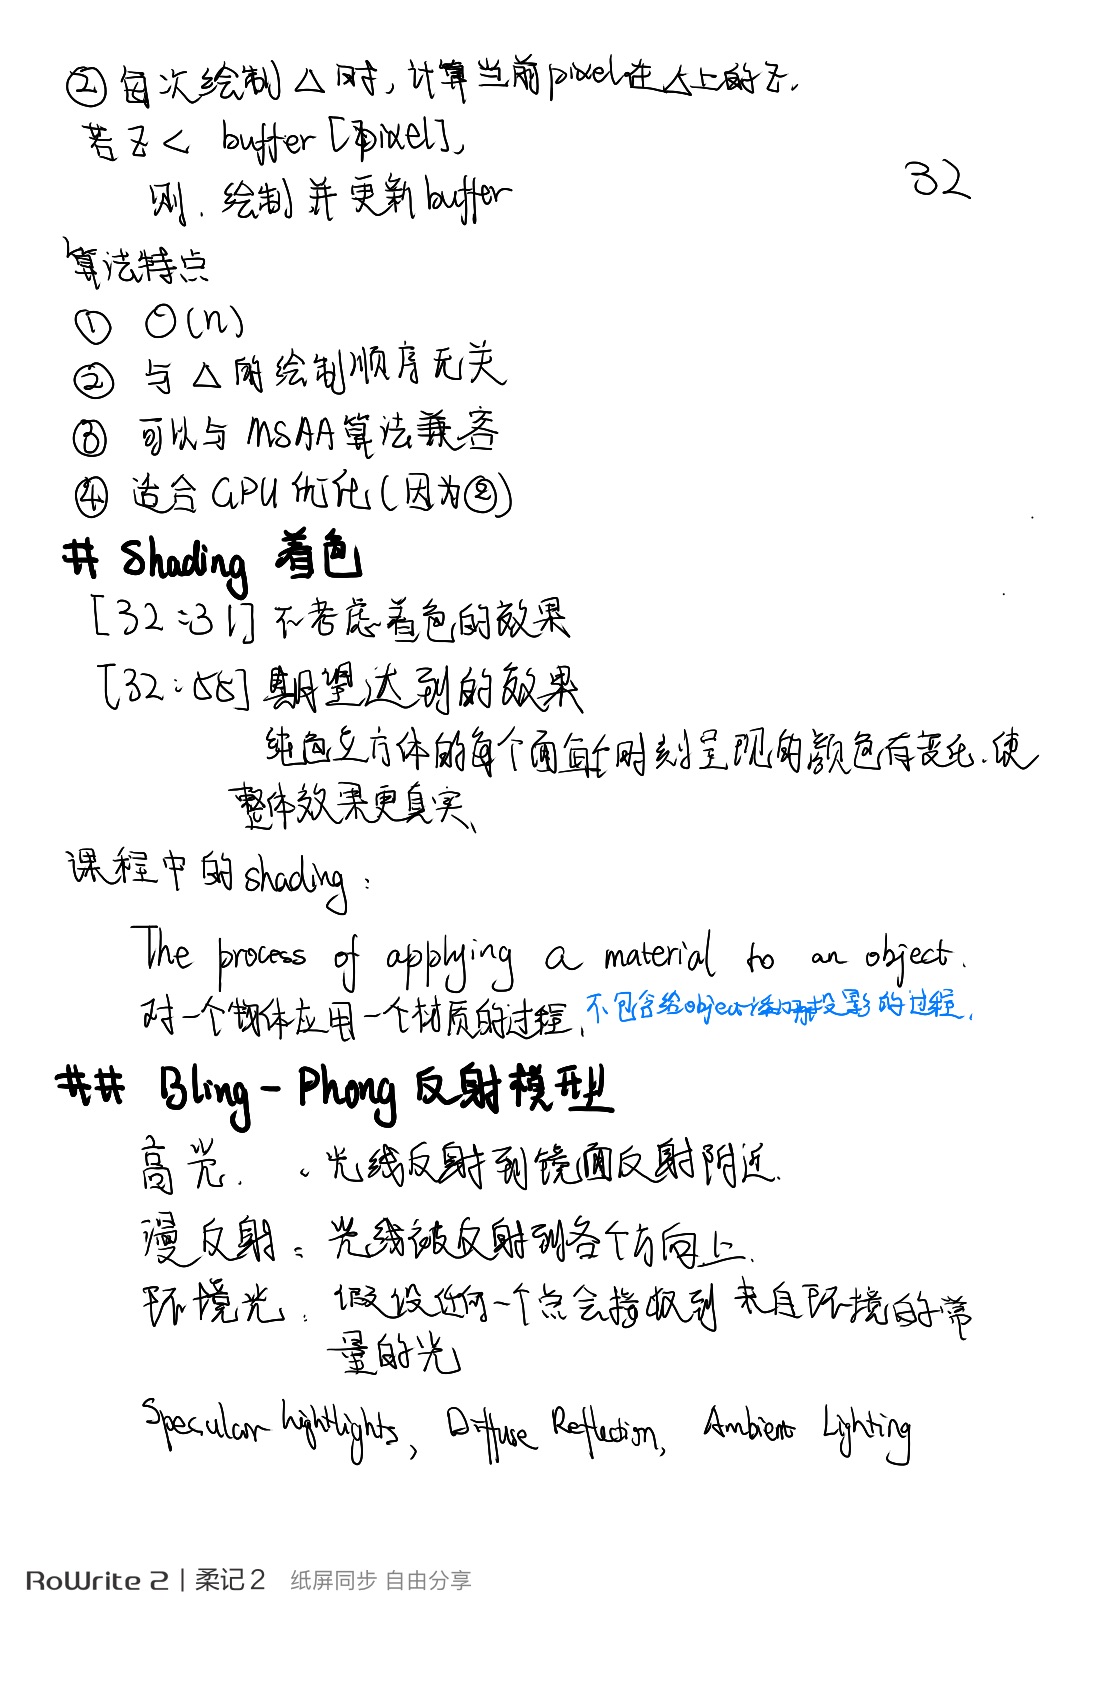 ② 每次绘制 △ 时, 计算当前pixel在△上的z.
若 z < buffer [pixel],
32
则. 绘制 并 更新 buffer
算法特点
① O(n)
② 与 △ 的绘制顺序无关
③ 可以与 MSAA 算法兼容
④ 适合 GPU 优化 (因为②)
# Shading 着色
[32:31] 不考虑着色的效果
[32:55] 期望达到的效果
纯色立方体的每个面每时刻呈现的颜色有变化. 使
整体效果更真实、
课程中的 shading:
The process of applying a material to an object.
对一个物体应用一个材质的过程、不包含给object 投影的过程.
## Bling-Phong 反射模型
高光. : 光线反射到镜面反射附近.
漫反射: 光线被反射到各个方向上.
环境光: 假设任何一个点会接收到 来自环境的常
量的光
Specular hightlights, Diffuse Reflection, Ambient Lighting
RoWrite 2 | 柔记 2 纸屏同步 自由分享